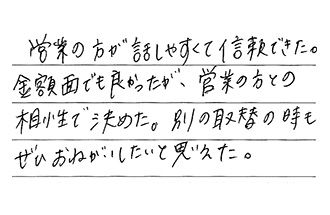 営業の方が話しやすくて信頼できた。
金額面でも良かったが、営業の方との
相性で決めた。別の取替の時も
ぜひおねがいしたいと思えた。